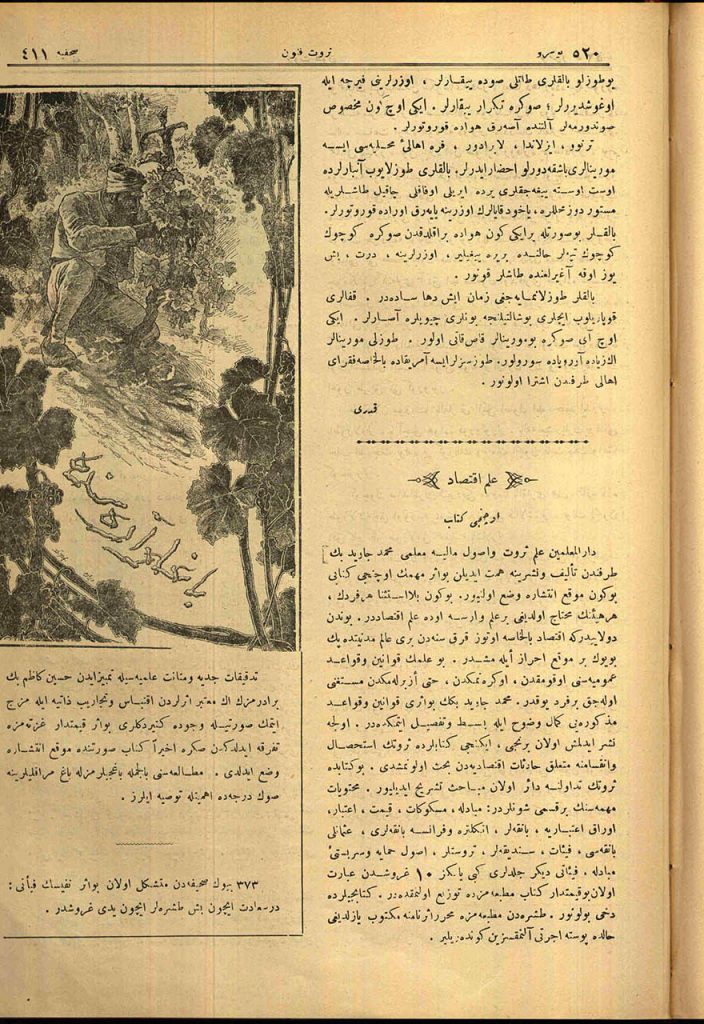 ٥٢٠ نومرو
ثروت فنون
صحيفه ٤١١
بوطوزلو بالقلرى طاتلى صوده ييقارلر ، اوزرلرينى فيرچه ايله
اوغوشديررلر ؛ صوكره تكرار ييقارلر . ايكى اوچ كون مخصوص
صوندورمه‌لر آلتنده آصه‌رق هواده قوروتورلر .
ترنوو ، ايزلاندا ، لابرادور ، فره اهالئ محليه‌سى ايسه
مورينالرى باشقه دورلو احضار ايدرلر. بالقلرى طوزلايوب آنبارلرده
اوست اوسته ييغه‌جقلرى يرده ايريلى اوفاقلى چاقيل طاشلريله
مستور دوز محللره ، ياخود قايالرك اوزرينه يايه‌رق اوراده قوروتورلر.
بالقلر بوصورتله برايكى كون هواده براقلدقدن صوكره كوچوك
كوچوك تپه‌لر حالنده بريره ييغيلير ، اوزرلرينه ، درت ، بش
يوز اوقه آغيرلغنده طاشلر قونور .
بالقلر طوزلانمايه‌جغى زمان ايش دها ساده‌در . قفالرى
قوپاريلوب ايچلرى بوشالتيلنجه بونلرى چيويلره آصارلر . ايكى
اوچ آى صوكره بومورينالر قاس‌قاتى اولور . طوزلى مورينالر
اك زياده آوروپاده سورولور. طوزسزلر ايسه آمريقاده بالخاصه فقراى
اهالى طرفندن اشترا اولونور .
قدرى
علم اقتصاد
اوچنجى كتاب
دارالمعلمين علم ثروت واصول ماليه معلمى محمد جاويد بك
طرفندن تأليف ونشرينه همت ايديلن بواثر مهمك اوچنجى كتابى
بوكون موقع انتشاره وضع اولنيور. بوكون بلااستثنا هرفردك ،
هرهيئتك محتاج اولديغى برعلم وارسه اوده علم اقتصاددر . بوندن
دولاييدركه اقتصاد بالخاصه اوتوز قرق سنه‌دن برى عالم مدنيتده پك
بويوك بر موقع احراز ايله‌مشدر . بو علمك قوانين وقواعد
عموميه‌سنى اوقومقدن ، اوكره‌نمكدن ، حتى ازبرله‌مكدن مستغنى
اوله‌جق برفرد يوقدر. محمد جاويد بكك بواثرى قوانين وقواعد
مذكوره‌يى كمال وضوح ايله بسط وتفصيل ايتمكده‌در . اولجه
نشر ايدلمش اولان برنجى ، ايكنجى كتابلرده ثروتك استحصال
وانقسامنه متعلق حادثات اقتصاديه‌دن بحث اولونمشدى . بوكتابده
ثروتك تداولنه دائر اولان مباحث تشريح ايديليور . محتويات
مهمه‌سنك برقسمى شونلردر: مبادله ، مسكوكات ، قيمت ، اعتبار،
اوراق اعتباريه ، بانقه‌لر ، انكلتره وفرانسه بانقه‌لرى ، عثمانلى
بانقه‌سى ، فيئات ، سنديقه‌لر ، تروستلر ، اصول حمايه وسربستئ
مبادله . فيئاتى ديكر جلدلرى كبى يالكز ١٠ غروشدن عبارت
اولان بوقيمتدار كتاب مطبعه‌مزده توزيع اولنمقده‌در. كتابجيلرده
دخى بولونور . طشره‌دن مطبعه‌مزه محرر اثر نامنه مكتوب يازلديغى
حالده پوسته اجرتى آلنمقسزين كوندريلير .
تدقيقات جديه ومتانت علميه‌سيله تميز ايدن حسين كاظم بك
برادرمزك اك معتبر اثرلردن اقتباس وتجاريب ذاتيه ايله مزج
ايتمك صورتيله وجوده كتيردكلرى بواثر قيمتدار غزته‌مزه
تفرقه ايدلدكدن صكره اخيراً كتاب صورتنده موقع انتشاره
وضع ايدلدى . مطالعه‌سنى بالجمله باغجيلرمزله باغ مراقليلرينه
صوك درجه‌ده اهميتله توصيه ايلرز .
٣٧٣ بيوك صحيفه‌دن متشكل اولان بواثر نفيسك فيأتى :
درسعادت ايچون بش طشره‌لر ايچون يدى غروشدر .